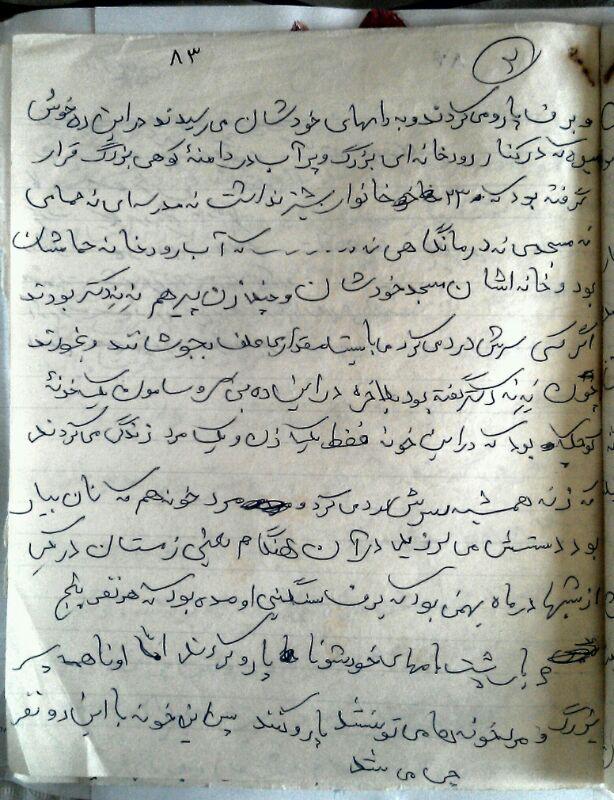 ۸۳
۳
و برف پارو می کردند و به دامهای خودشان می رسیدند در این ده خوش
میوه که در کنار رودخانه ای بزرگ و پر آب در دامنهٔ کوهی بزرگ قرار
گرفته بود که ۳۳ خانوار بیشتر نداشت نه مدرسه ای نه حمامی
نه مسجدی نه درمانگاهی نه ........ که آب رودخانه حماشان
بود و خانه اشان مسجد خودشان و چند زن پیر هم بودند
اگر کسی سرش درد می کرد می بایست مقداری علف بجوشانند و بخورند
چون گفته بود بلاخره در این ده بی سر و سامون یک خونهٔ
کوچک بود که در این خونه فقط یک زن و یک مرد زندگی می کردند
که زنه همیشه سرش درد می کرد و مرد خونه هم که نان بیار
بود دستش می لرزید در آن هنگام یعنی زمستان در یکی
از شبها در ماه بهمن بود که برف سنگینی اومده بود که هر نفر پنج
بار پشت بامهای خودشونا پارو کردند اما اونا همه پسر
بزرگ و مرد خونه ها می تونستند پارو کنند پس این خونه با این دو نفر
چی می شد